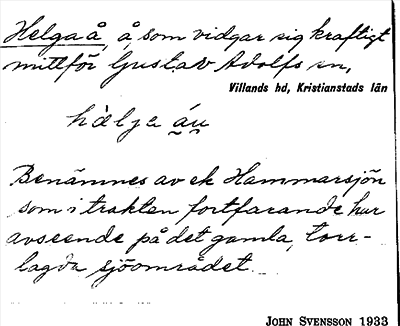 Helgaå, å, som vidgar sig kraftigt
mittför Gustav Adolfs sn,
Villands hd, Kristianstads län
hàlja áu
Benämnes av ek Hammarsjön
som i trakten fortfarande har
avseende på det gamla, torr-
lagda sjöområdet.
JOHN SVENSSON 1933